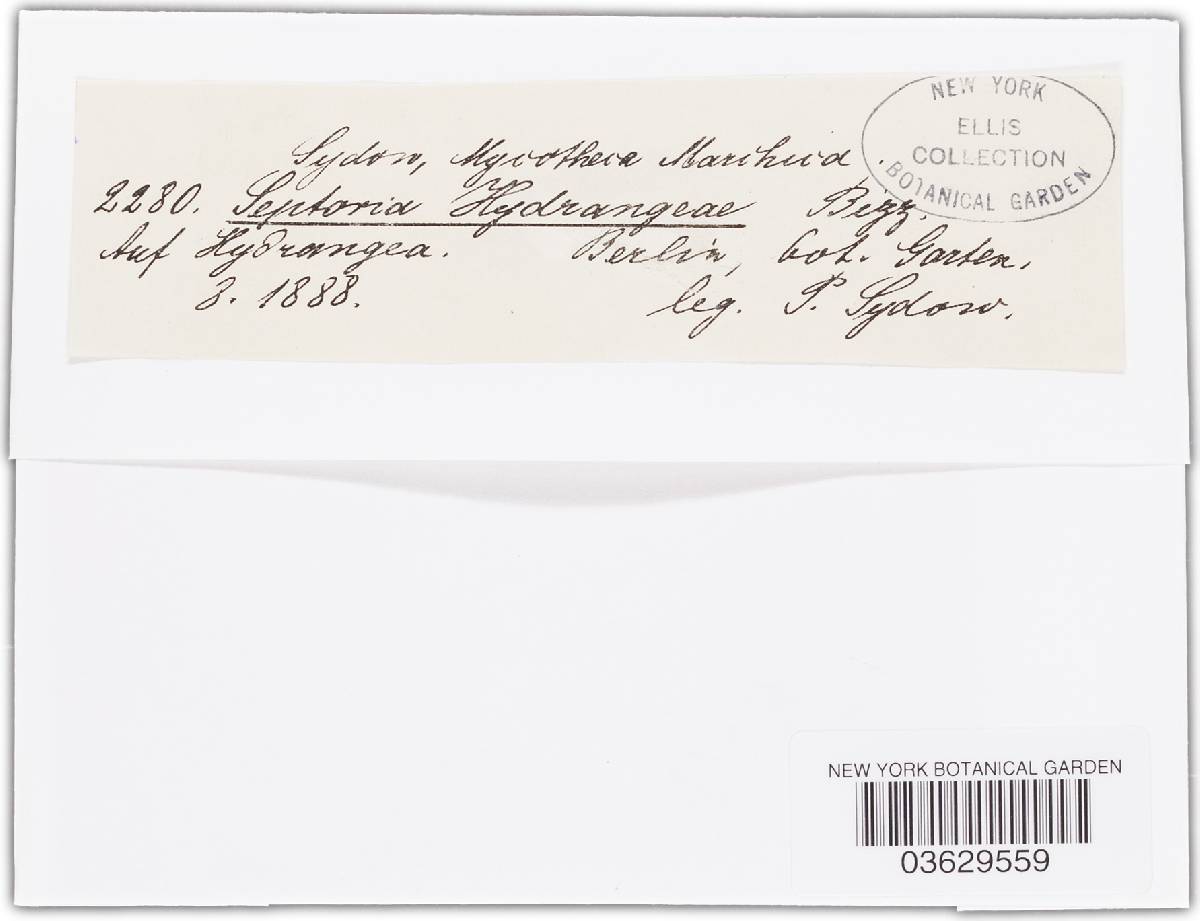 NEW YORK
ELLIS
COLLECTION
BOTANICAL GARDEN
Sydow, Mycotheca Marchica.
2280. Septoria Hydrangeae Bizz.
Auf Hydrangea. Berlin, bot. Garten.
8. 1888. leg. P. Sydow.
NEW YORK BOTANICAL GARDEN
03629559